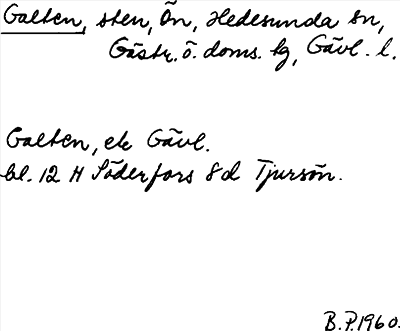 Galten, sten, Ön, Hedesunda sn,
Gästr. ö. doms. hg, Gävl. l.
Galten, ek Gävl.
bl. 12 H Söderfors 8d Tjursön.
B.P. 1960.